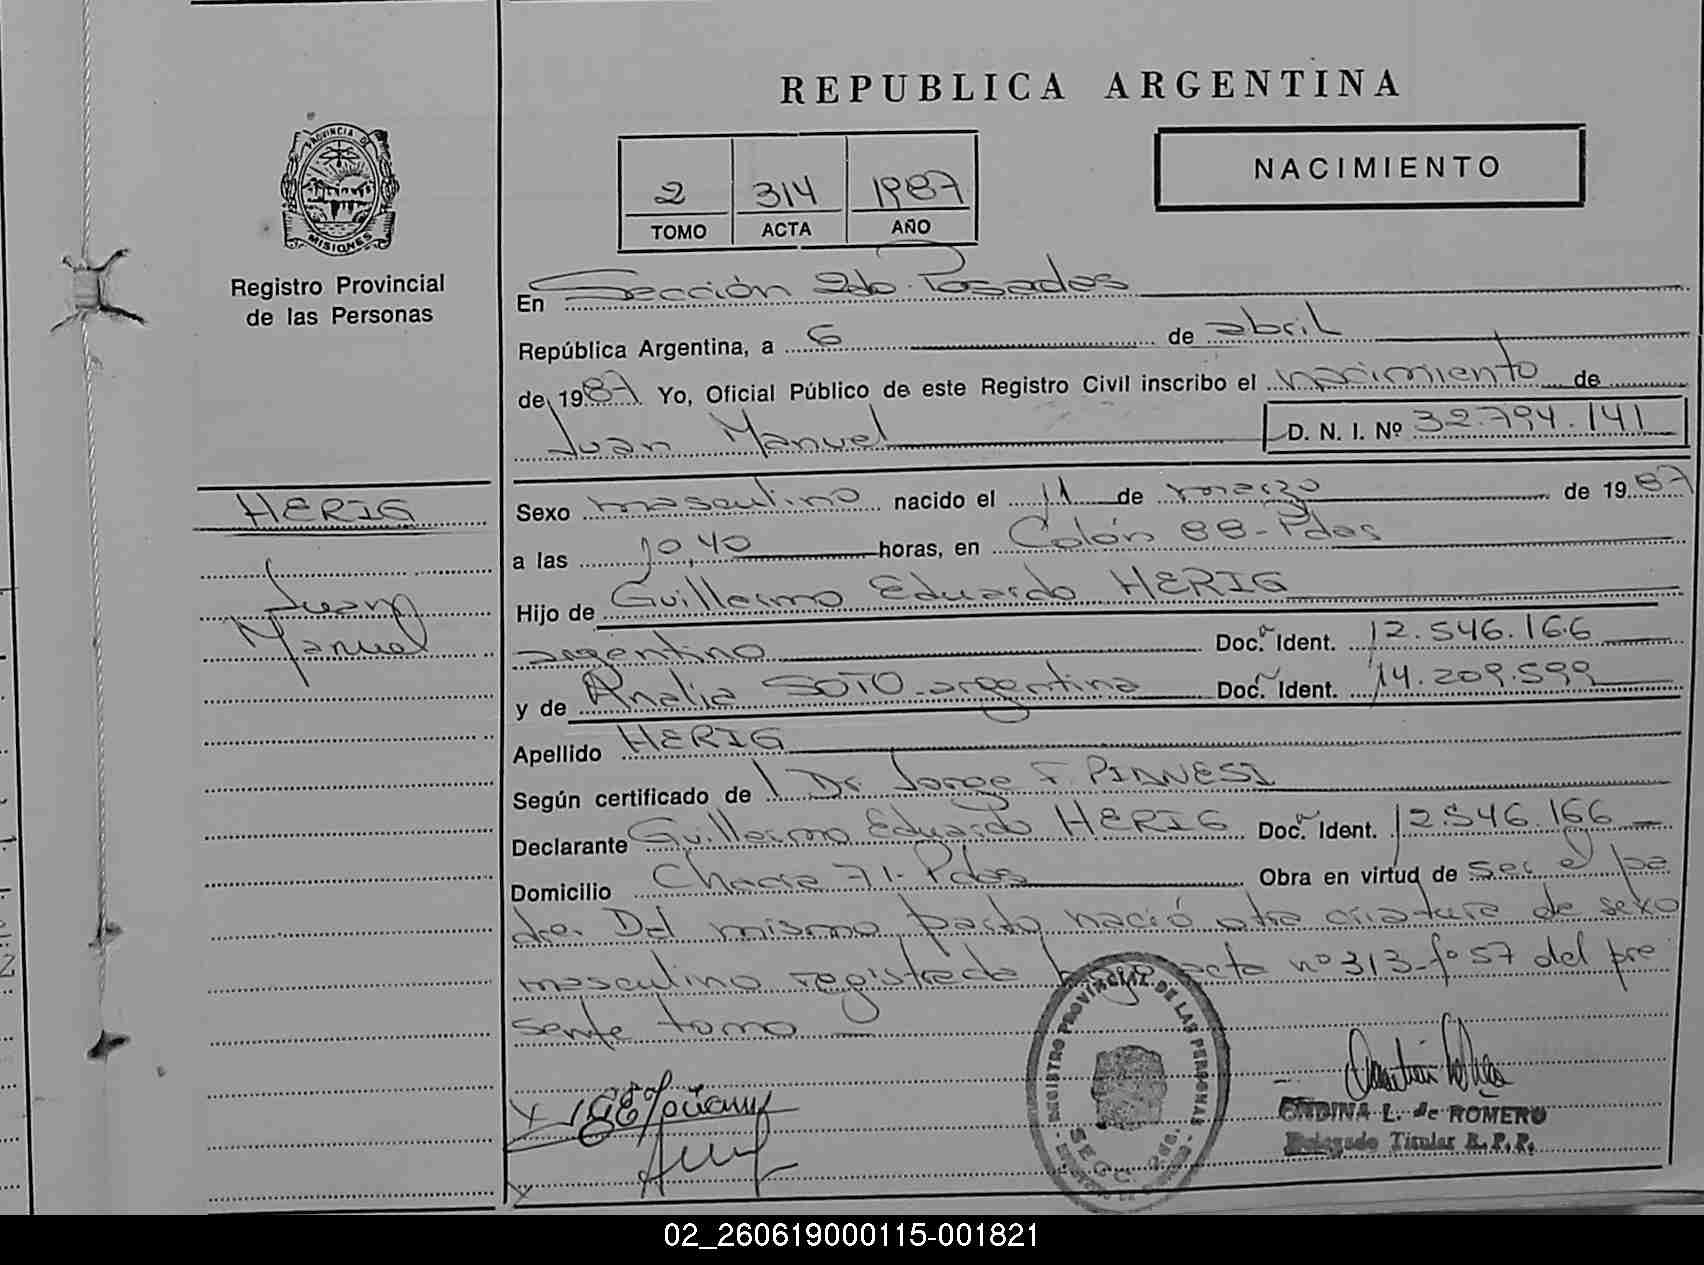 REPUBLICA ARGENTINA
NACIMIENTO
2 314 1987
TOMO ACTA AÑO
PROVINCIA DE
MISIONES
Registro Provincial
de las Personas
En Sección 2da. Posadas
República Argentina, a 6 de abril
de 1987 Yo, Oficial Público de este Registro Civil inscribo el nacimiento de
Juan Manuel D. N. I. Nº 32.794.141
HERIG
Juan
Manuel
Sexo masculino nacido el 11 de marzo de 1987
a las 10,40 horas, en Colón 88-Pdas
Hijo de Guillermo Eduardo HERIG
argentino Doc. Ident. 12.546.166
y de Analia SOTO-argentina Doc. Ident. 14.209.599
Apellido HERIG
Según certificado de Dr. Jorge F. PIANESI
Declarante Guillermo Eduardo HERIG Doc. Ident. 12546.166
Domicilio Chacra 71-Pdas Obra en virtud de ser el pa
dre. Del mismo parto nació otra criatura de sexo
masculino registrada bajo acta nº 313-fº 57 del pre
sente tomo
REGISTRO PROVINCIAL DE LAS PERSONAS
ONDINA L. de ROMERO
Delegado Titular R.P.P.
02_260619000115-001821